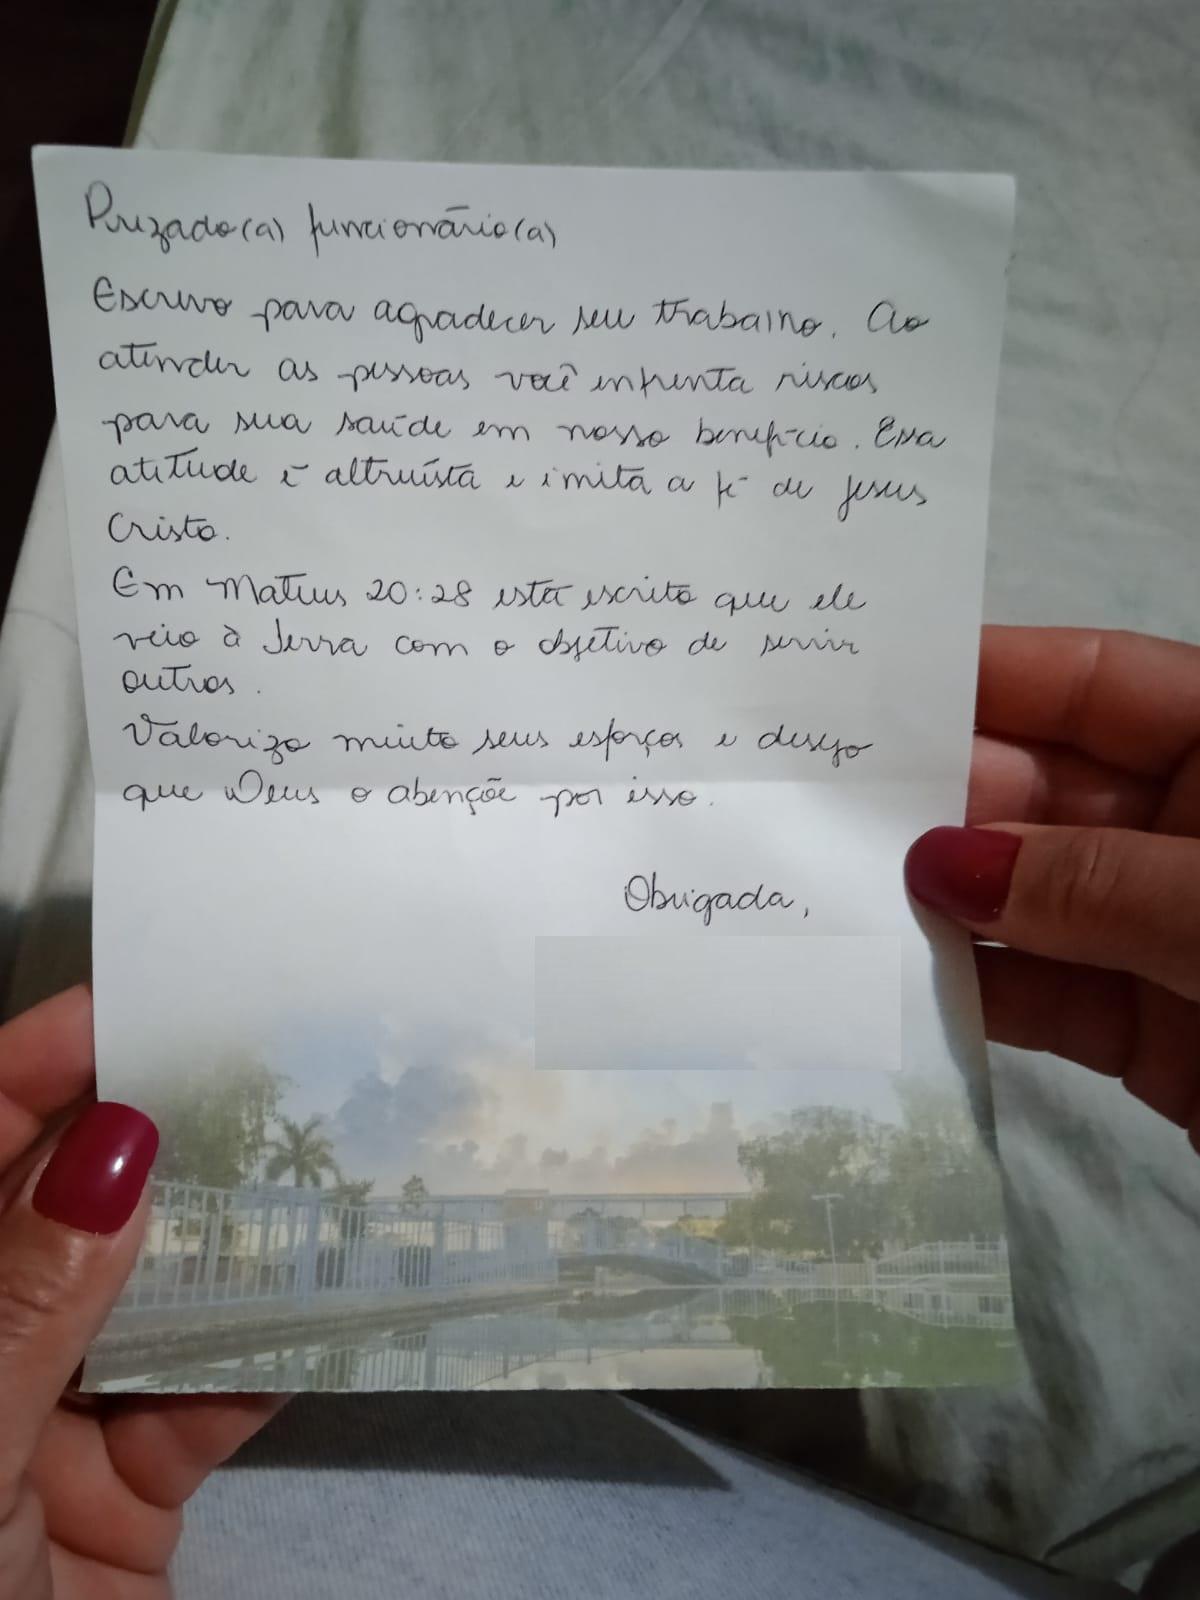 Prezado(a) funcionário(a)
Escrevo para agradecer seu trabalho. Ao
atender as pessoas você enfrenta riscos
para sua saúde em nosso benefício. Essa
atitude é altruísta e imita a fé de Jesus
Cristo.
Em Mateus 20:28 está escrito que ele
veio à Terra com o objetivo de servir
outros.
Valorizo muito seus esforços e desejo
que Deus o abençõe por isso.
Obrigada,